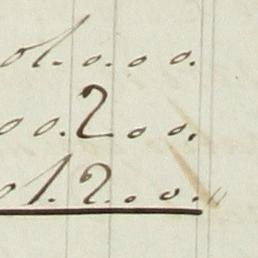 01.0.0.0.
00.2.00.
01.2.0.0.